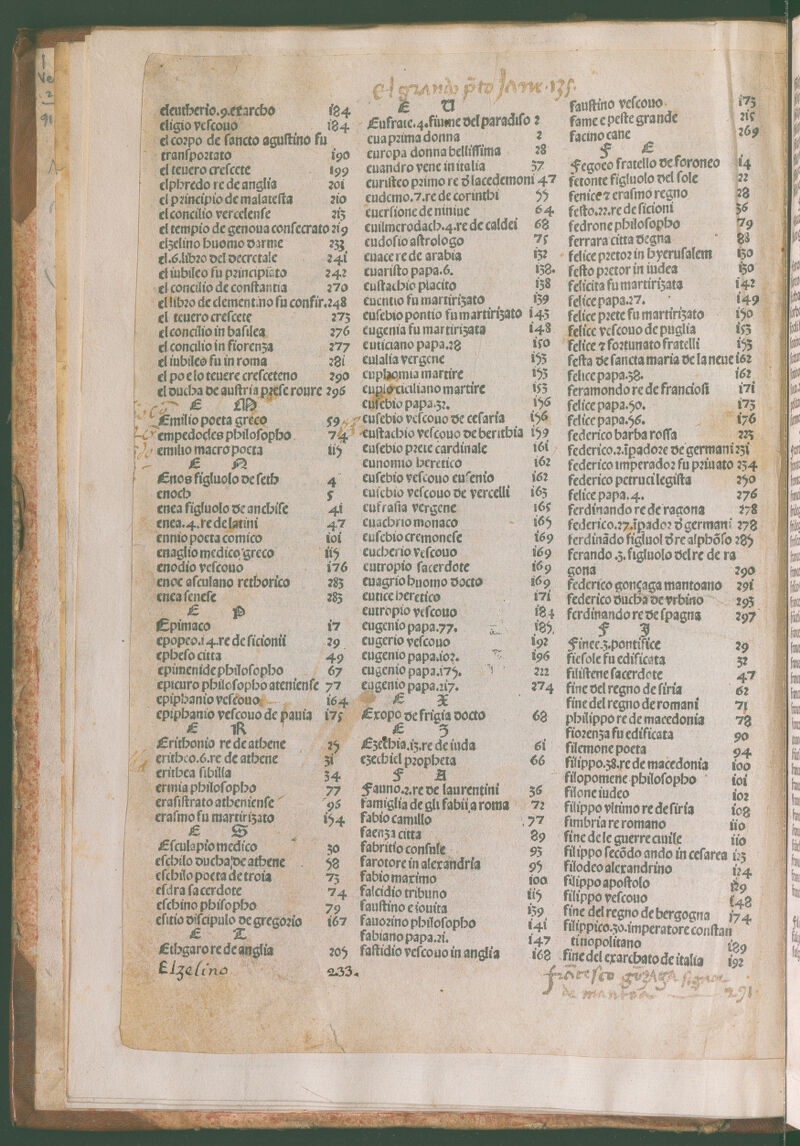 el grando pto Jane. 135.
eleutherio.9.exarcho 184
eligio veſcouo 184
el corpo de ſancto aguſtino fu
tranſportato 190
el teuero creſcete 199
elphredo re de anglia 201
el principio de malateſta 210
el concilio vercelenſe 213
el tempio de genoua conſecrato 219
elzelino huomo darme 233
el.6.libro del decretale 241
el iubileo fu principiato 242
el concilio de conſtantia 270
el libro de clement.no fu confir.248
el teuero creſcete 273
el concilio in baſilea 276
el concilio in fiorenza 277
el iubileo fu in roma 281
el po e lo teuere creſceteno 290
el ducha de auſtria preſe roure 296
E M
Emilio poeta greco 59
empedocles philoſopho 74
emilio macro poeta 115
E N
Enos figluolo de ſeth 4
enoch 5
enea figluolo de anchiſe 41
enea.4.re de latini 47
ennio poeta comico 101
enaglio medico greco 115
enodio veſcouo 176
enoc aſculano rethorico 283
enea ſeneſe 283
E P
Epimaco 17
epopeo.14.re de ſicionii 29
epheſo citta 49
epimenide philoſopho 67
epicuro philoſopho atenienſe 77
epiphanio veſcouo 164
epiphanio veſcouo de pauia 175
E R
Erithonio re de athene 25
eritheo.6.re de athene 31
erithea ſibilla 34
ermia philoſopho 77
eraſiſtrato athenienſe 96
eraſmo fu martirizato 154
E S
Eſculapio medico 30
eſchilo ducha de athene 58
eſchilo poeta de troia 73
eſdra ſacerdote 74
eſchino phiſopho 79
eſitio diſcipulo de gregorio 167
E T
Ethgaro re de anglia 205
Elzelino 233.
E U
Eufrate.4.fiume del paradiſo 2
eua prima donna 2
europa donna belliſſima 28
euandro vene in italia 37
euriſteo primo re d̄ lacedemoni 47
eudemo.7.re de corinthi 55
euerſione de niniue 64
euilmerodach.4.re de caldei 68
eudoſio aſtrologo 75
euace re de arabia 132
euariſto papa.6. 138
euſtachio placito 138
euentio fu martirizato 139
euſebio pontio fu martirizato 143
eugenia fu martirizata 148
euticiano papa.28 150
eulalia vergene 153
euphomia martire 153
euplo ciciliano martire 153
euſebio papa.32. 156
euſebio veſcouo de ceſaria 156
euſtachio veſcouo de berithia 159
euſebio prete cardinale 161
eunomio heretico 162
euſebio veſcouo euſenio 162
euſebio veſcouo de vercelli 163
eufraſia vergene 165
euachrio monaco 165
euſebio cremoneſe 169
eucherio veſcouo 169
eutropio ſacerdote 169
euagrio huomo docto 169
eutice heretico 171
eutropio veſcouo 184
eugenio papa.77. 185
eugerio veſcouo 192
eugenio papa.102. 196
eugenio papa.175. 222
eugenio papa.217. 274
E X
Exopo de frigia docto 68
E Z
Ezechia.13.re de iuda 61
ezechiel propheta 66
F A
Fauno.2.re de laurentini 36
famiglia de gli fabii a roma 72
fabio camillo 77
faenza citta 89
fabritio conſule 93
farotore in alexandria 95
fabio maximo 100
falcidio tribuno 115
fauſtino e iouita 139
fauorino philoſopho 141
fabiano papa.21. 147
faſtidio veſcouo in anglia 168
fauſtino veſcouo 173
fame e peſte grande 215
facino cane 269
F E
Fegoeo fratello de foroneo 14
fetonte figluolo del ſole 22
fenice ⁊ eraſmo regno 28
feſto.22.re de ſicioni 36
fedrone philoſopho 79
ferrara citta degna 88
felice pretor in hyeruſalem 130
feſto pretor in iudea 130
felicita fu martirizata 142
felice papa.27. 149
felice prete fu martirizato 150
felice veſcouo de puglia 153
felice ⁊ fortunato fratelli 153
feſta de ſancta maria de la neue 162
felice papa.38. 162
feramondo re de francioſi 171
felice papa.50. 173
felice papa.56. 176
federico barba roſſa 225
federico.2.īpadore de germani 231
federico imperador fu priuato 234
federico petruci legiſta 250
felice papa.4. 276
ferdinando re de ragona 278
federico.27.īpador d̄ germani 278
ferdinādo figluol d̄ re alphōſo 285
ferando.3.figluolo del re de ra
gona 290
federico gonçaga mantoano 291
federico ducha de vrbino 293
ferdinando re de ſpagna 297
F I
Finee.3.pontifice 29
fieſole fu edificata 32
filiſtene ſacerdote 47
fine del regno de ſiria 62
fine del regno de romani 71
philippo re de macedonia 78
fiorenza fu edificata 90
filemone poeta 94
filippo.38.re de macedonia 100
filopomene philoſopho 101
filone iudeo 102
filippo vltimo re de ſiria 108
fimbria re romano 110
fine de le guerre ciuile 110
filippo ſecōdo ando in ceſarea 123
filodeo alexandrino 124
filippo apoſtolo 129
filippo veſcouo 148
fine del regno de bergogna 174
filippico.30.imperatore conſtan
tinopolitano 189
fine del exarchato de italia 192
franceſco gonzaga ſignor
de mantoa 291